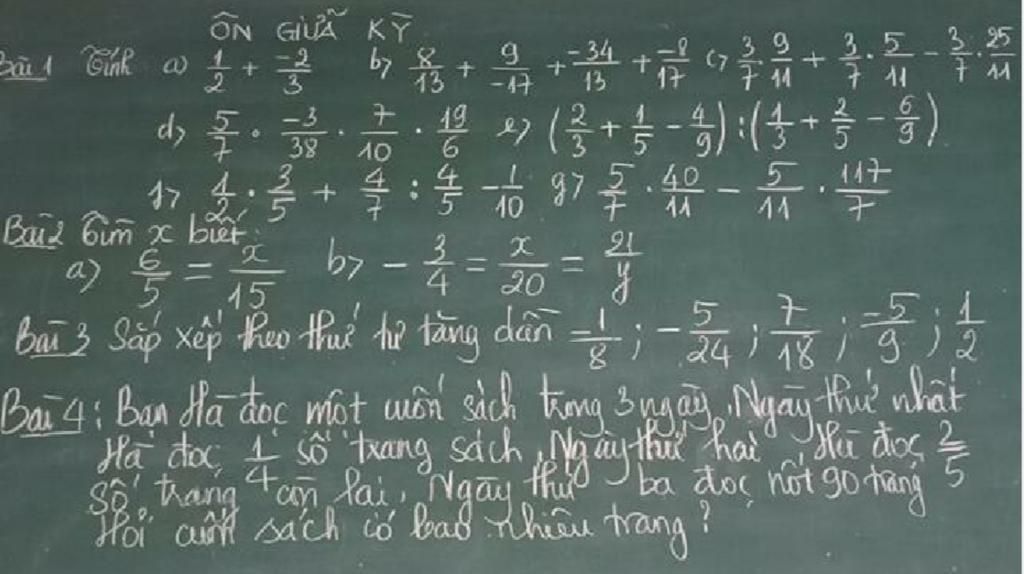 ÔN GIỮA KỲ
Bài 1 Tính a) 1/2 + -2/3 b) 8/13 + 9/-17 + -34/13 + -8/17 c) 3/7 . 9/11 + 3/7 . 5/11 - 3/7 . 25/11
d) 5/7 . -3/38 . 7/10 . 19/6 e) (2/3 + 1/5 - 4/9) : (1/3 + 2/5 - 6/9)
f) 1/2 . 3/5 + 4/7 : 4/5 - 1/10 g) 5/7 . 40/11 - 5/11 . 117/7
Bài 2 Tìm x biết:
a) 6/5 = x/15 b) - 3/4 = x/20 = 21/y
Bài 3 Sắp xếp theo thứ tự tăng dần -1/8 ; - 5/24 ; 7/18 ; -5/9 ; 1/2
Bài 4: Bạn Hà đọc một cuốn sách trong 3 ngày. Ngày thứ nhất
Hà đọc 1/4 số trang sách, Ngày thứ hai Hà đọc 2/5
Số trang còn lại, Ngày thứ ba đọc nốt 90 trang
Hỏi cuốn sách có bao nhiêu trang?